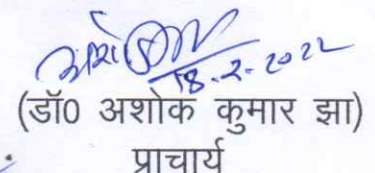 18.2.2022
(डॉ0 अशोक कुमार झा)
प्राचार्य